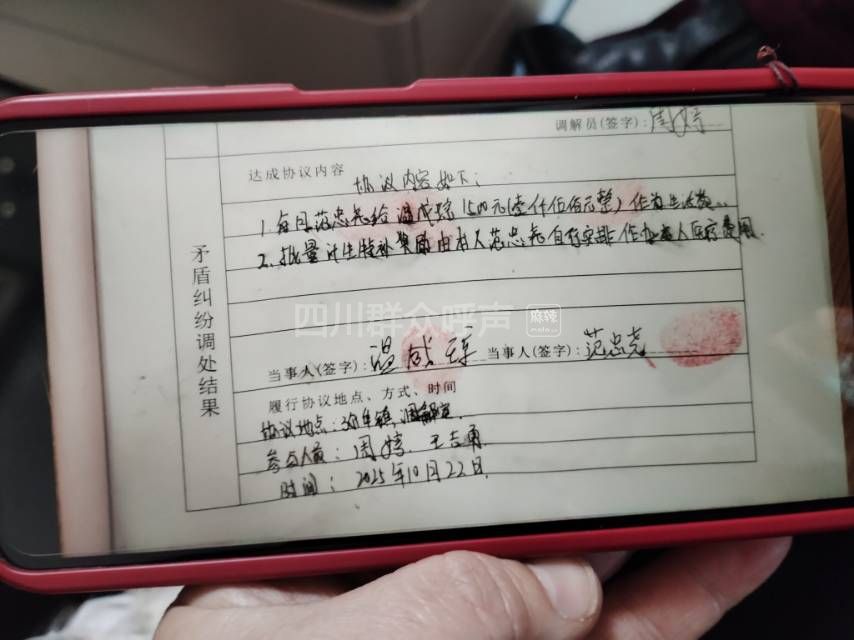 调解员(签字):周婷
达成协议内容
协议内容如下:
1.每月范忠尧给温成琼1500元(壹仟伍佰元整)作为生活费.
2.批量计生特补奖励由本人范忠尧自行安排作为本人医疗费用.
矛盾纠纷调处结果
四川群众呼声 麻辣
当事人(签字):温成琼 当事人(签字):范忠尧
履行协议地点、方式、时间
协议地点:弥牟镇调解室.
参与人员:周婷、王志勇
时间:2025年10月22日.